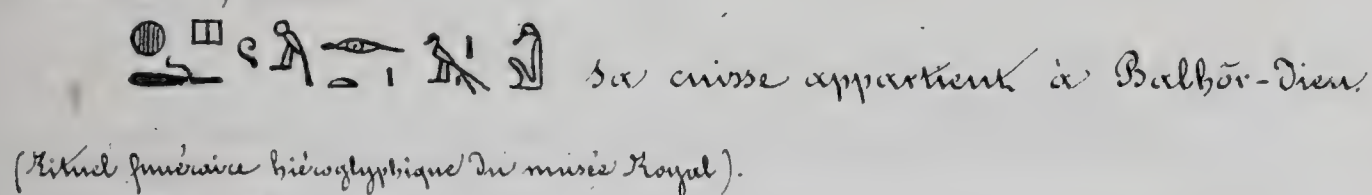 sa cuisse appartient à Balhōr-Dieu.
(Rituel funéraire hiéroglyphique du musée Royal).